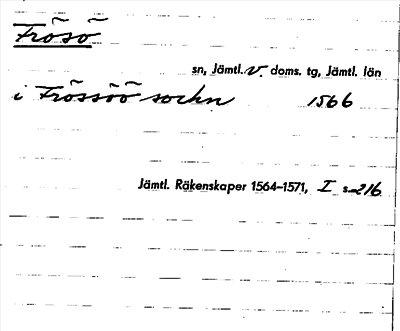 Frösö
sn, Jämtl. v. doms. tg, Jämtl. län
i Frössöö sochn 1566
Jämtl. Räkenskaper 1564–1571, I s. 216